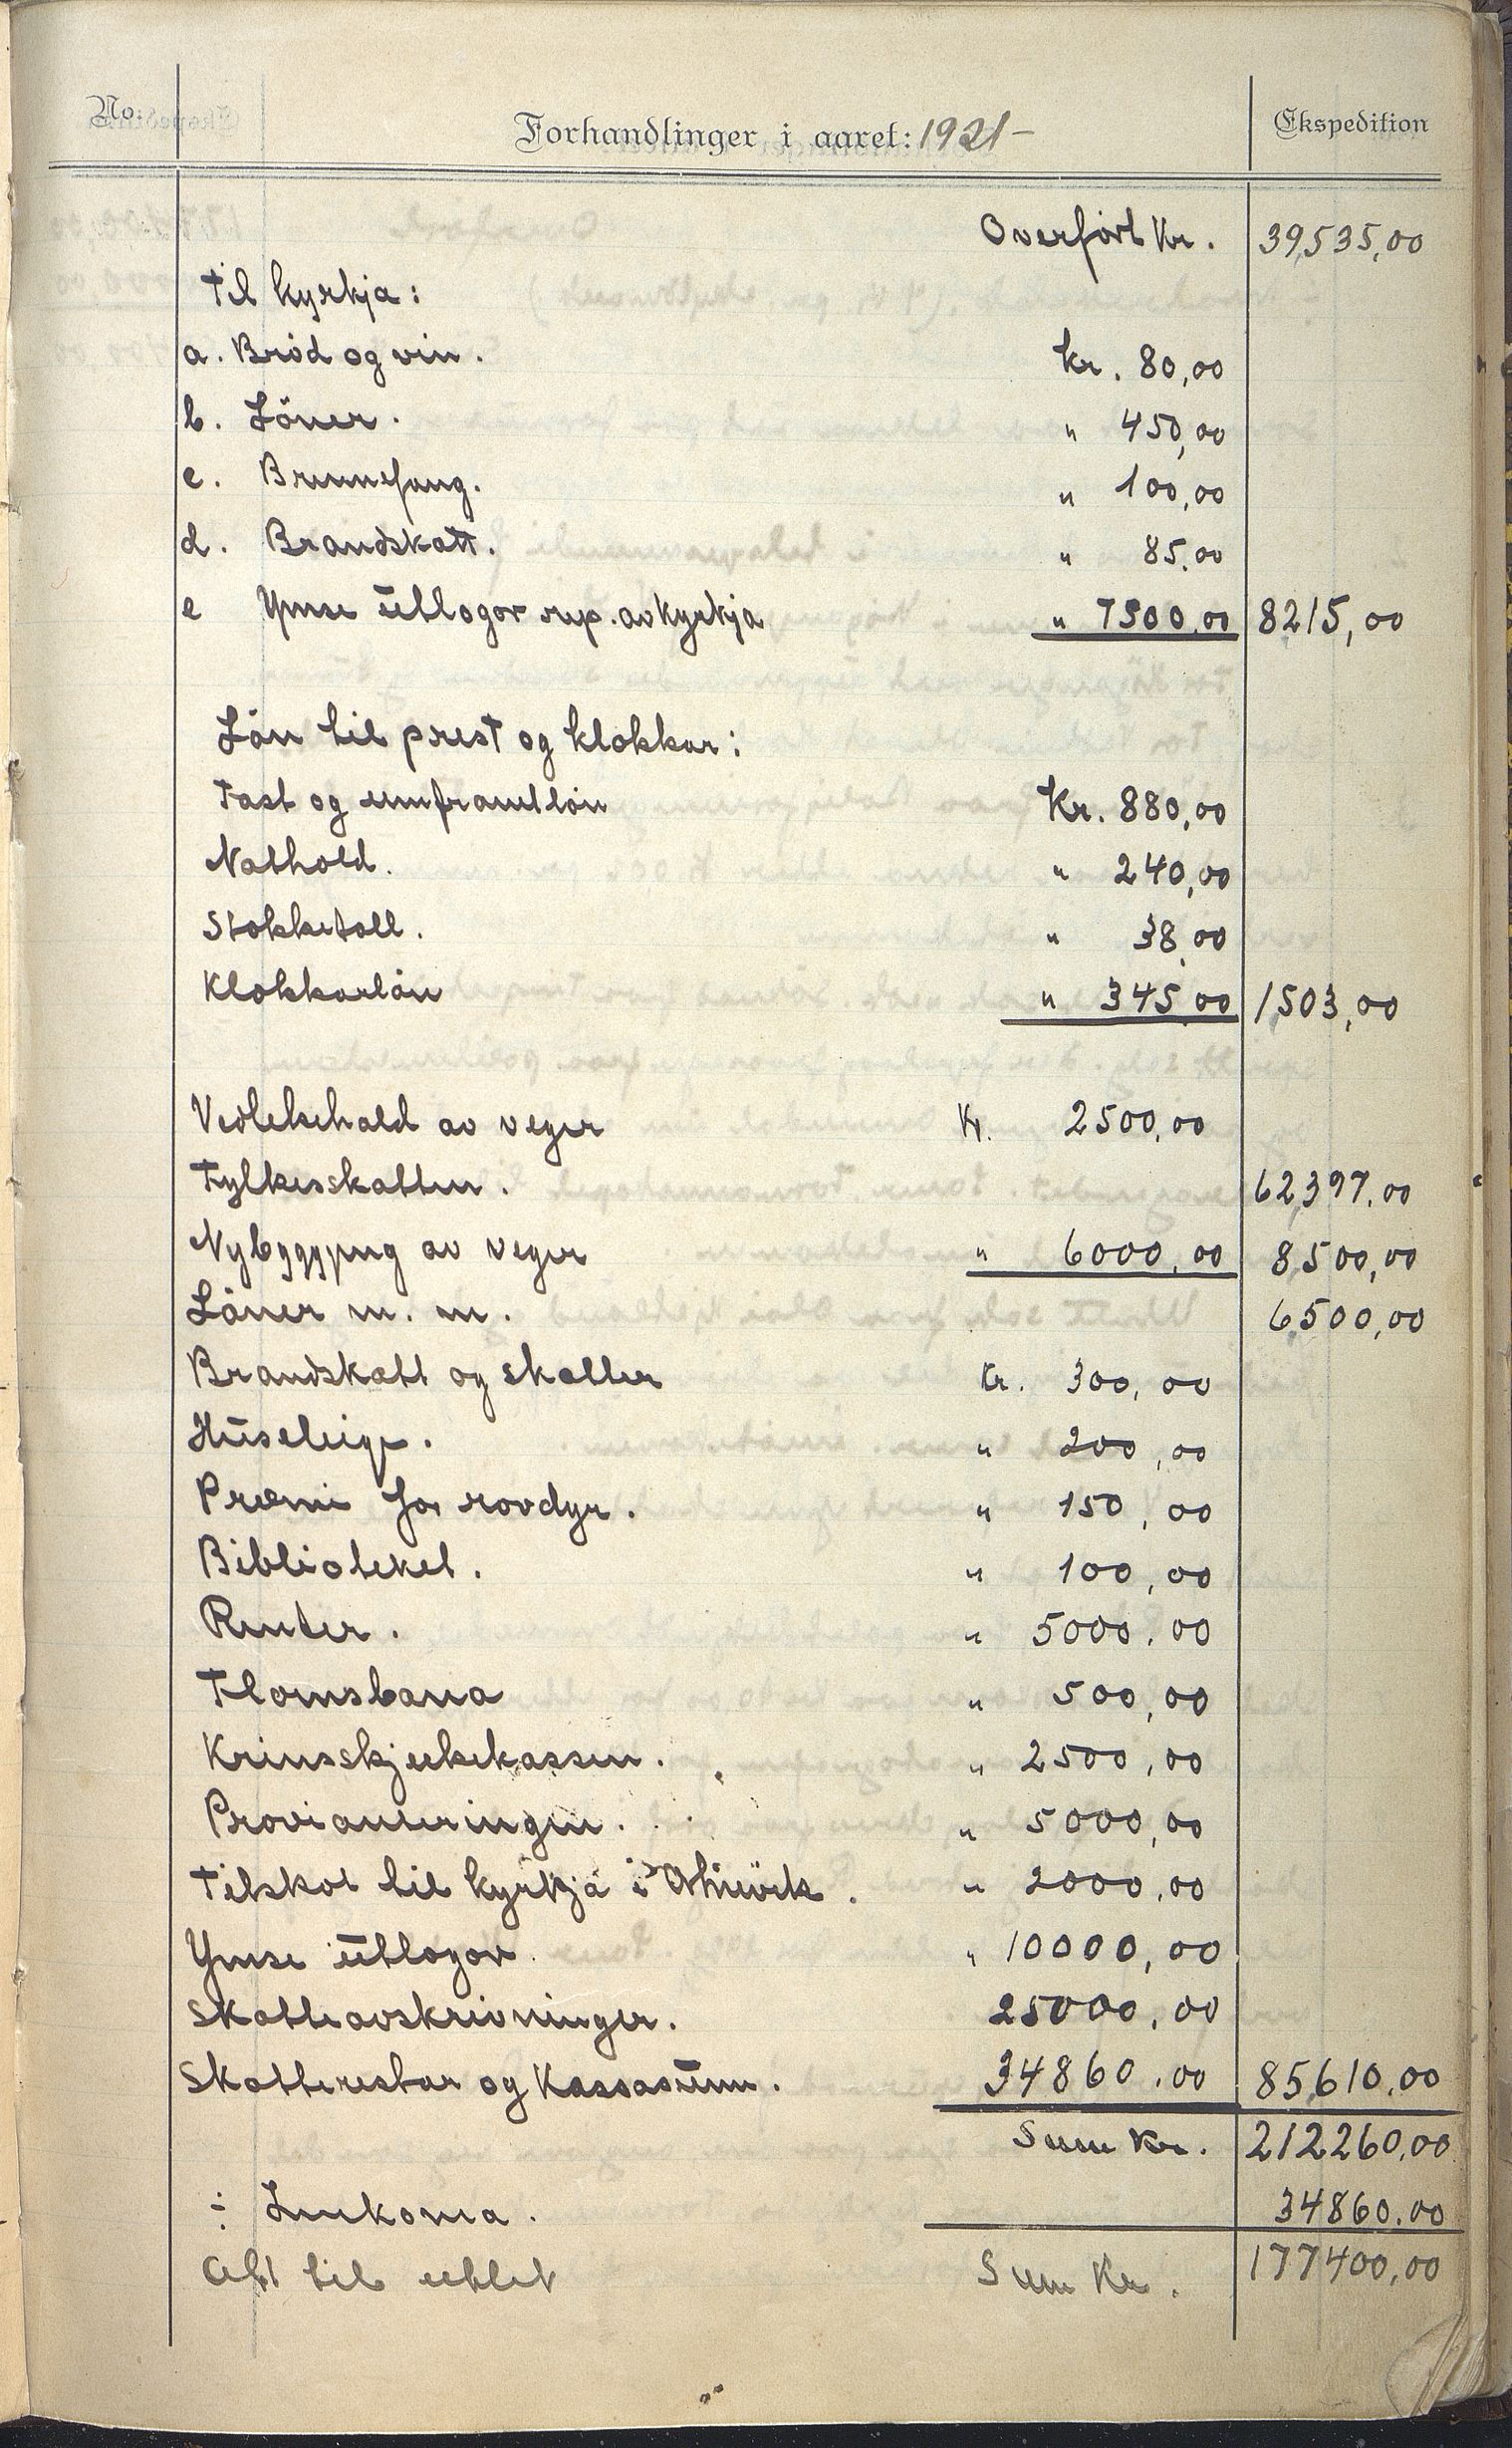 No: Forhandlinger i aaret: 1921- Ekspedition
Overført Kr. 39,535,00
Til kyrkja:
a. Bröd og vin. Kr. 80,00
b. Löner. " 450,00
c. Brennefang. " 100,00
d. Brandskatt. " 85,00
e Ymse utlogor rep. av kyrkja " 7500,00 8215,00
Lön til prest og klokkar:
Fast og umframtlön Kr. 880,00
Nathold. " 240,00
Stokketoll. " 38,00
Klokkarlön " 345,00 1503,00
Vedlekehald av veger Kr. 2500,00
Fylkesskatten. 62,397,00
Nybyggjing av veger " 6000,00 8500,00
Löner m. m. 6500,00
Brandskatt og skatter Kr. 300,00
Husleige. " 200,00
Premi for rovdyr. " 150,00
Biblioteket. " 100,00
Renter. " 5000,00
Flomsbana " 500,00
Krinssjukekassen. " 2500,00
Provianteringen. " 5000,00
Tilskot til kyrkja i " 2000,00
Ymse utlogor. " 10000,00
Skatteavskrivninger. 25000,00
Skatterestar og Kassasum. 34860,00 85,610,00
Sum Kr. 212260,00
÷ Innkoma. 34860,00
Att til utlet Sum Kr. 177400,00